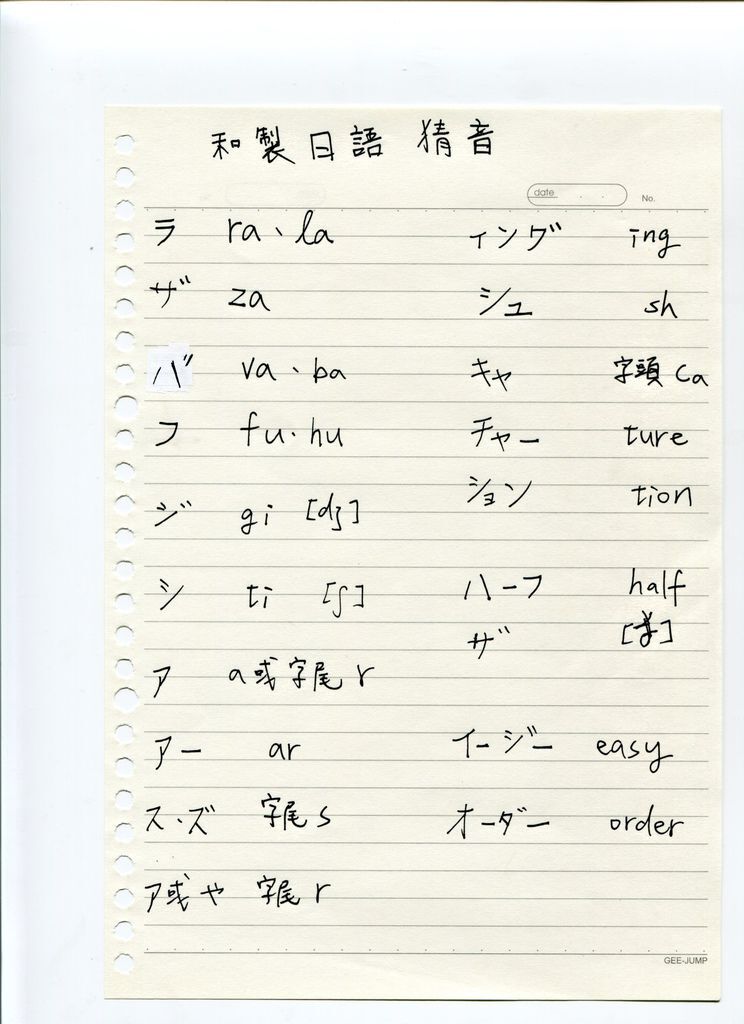 和製日語 猜音
date
No.
ラ ra、la
ザ za
バ va、ba
フ fu．hu
ジ gi [dʒ]
シ ti [ʃ]
ア a或字尾r
アー ar
ス．ズ 字尾s
ア或や 字尾r
ィング ing
シュ sh
キャ 字頭ca
チャー ture
ション tion
ハーフ half
ザ
イージー easy
オーダー order
GEE-JUMP